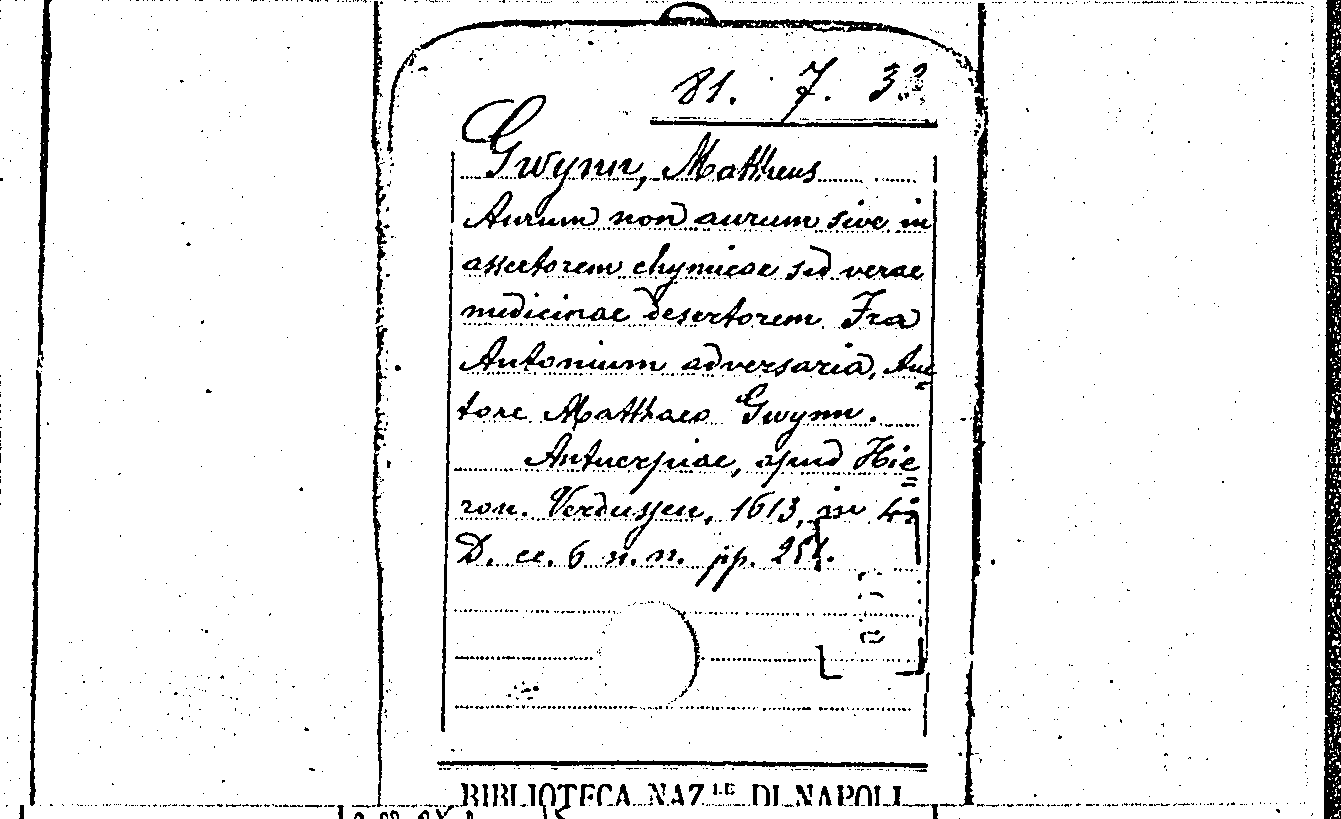 81. 7. 32
Gwynn, Mattheus
Aurum non aurum sive in
assertorem chymicae sed verae
medicinae desertorem Fra
Antonium adversaria, Auc
tore Matthaeo Gwynn.
Antuerpiae, apud Hie
ron. Verdussen, 1613, in 4º
D. cc. 6 n. n. pp.
BIBLIOTECA NAZ.LE DI NAPOLI